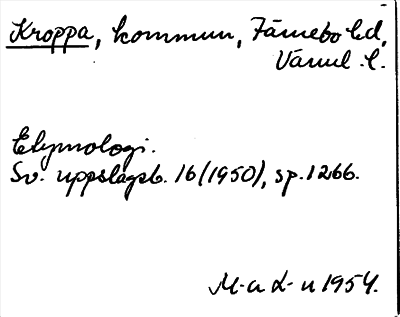 Kroppa, kommun, Färnebo hd,
Värml. l.
Etymologi.
Sv. uppslagsb. 16 (1950), sp. 1266.
M-a L-n 1954.